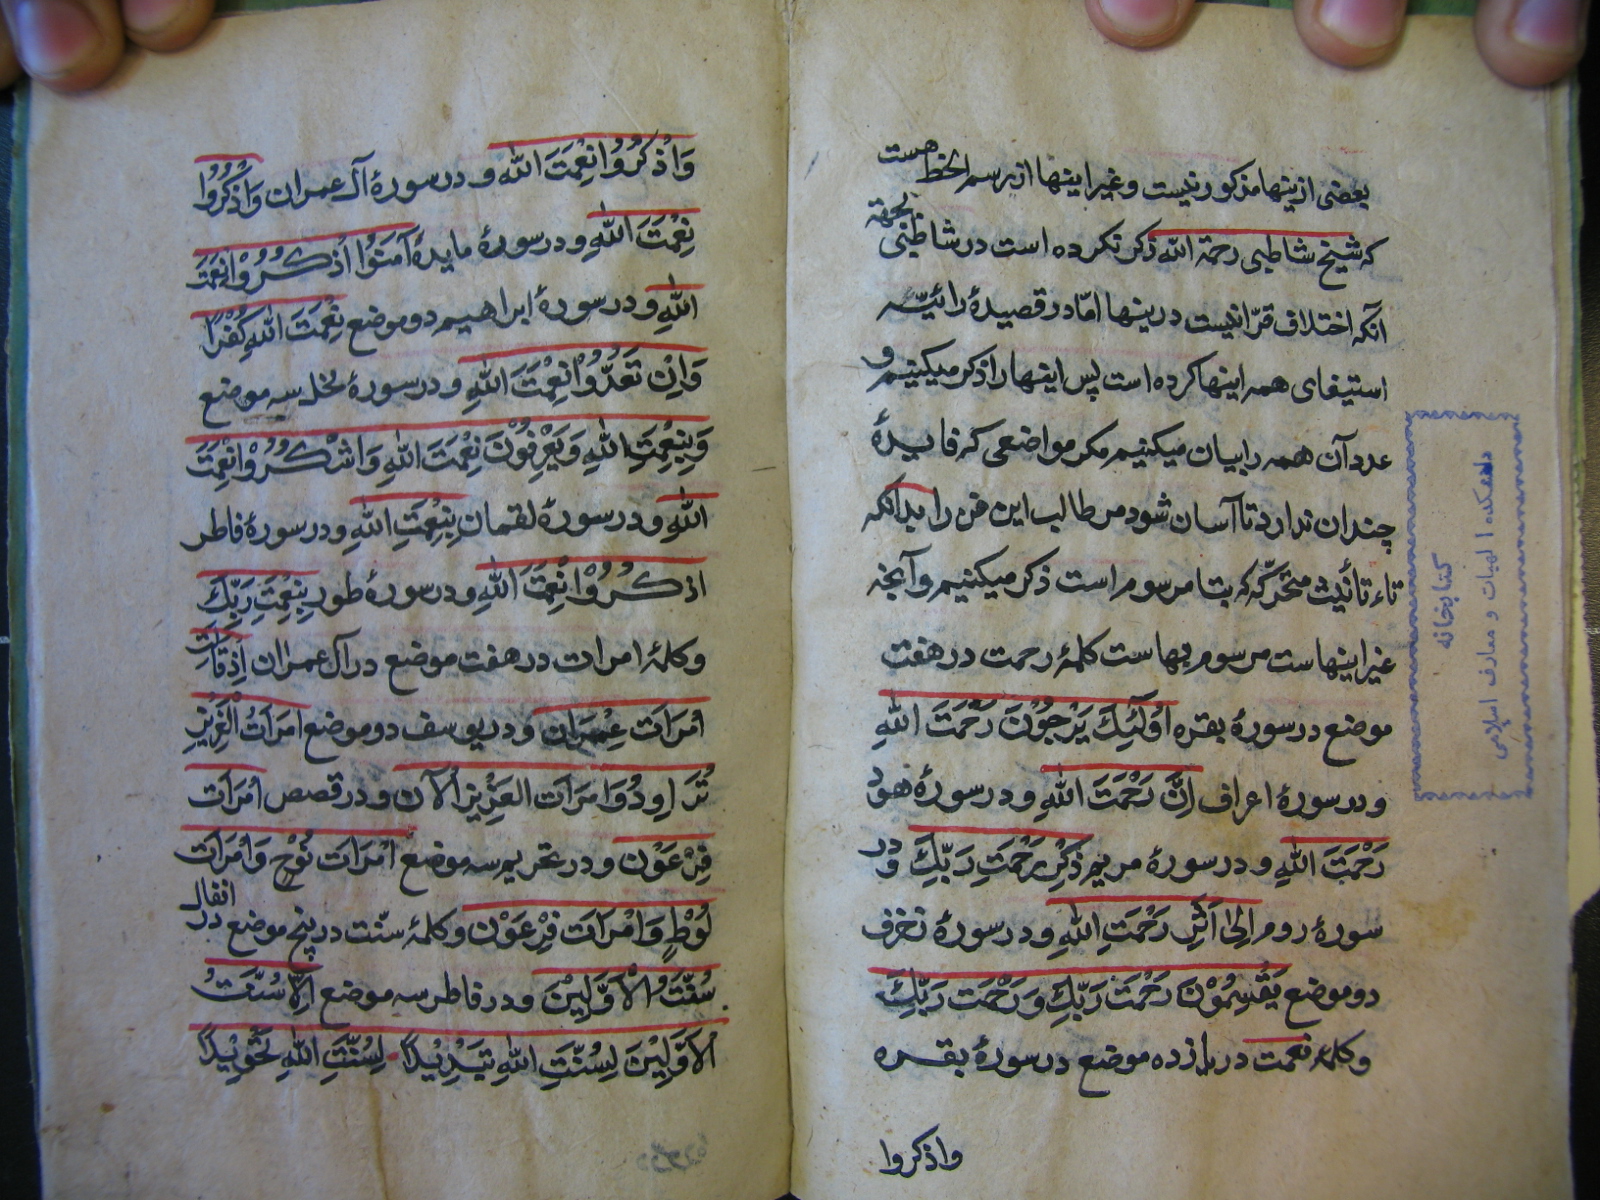 بعضی ازینها مذکور نیست و غیر اینها از رسم الخط هست
که شیخ شاطبی رحمة الله ذکر نکرده است در شاطبی بجهة
آنکه اختلاف قرّا نیست درینها امّا در قصیدهٔ رائیّه
استیفای همه اینها کرده است پس اینها را ذکر میکنیم و
عدد آن همه را بیان میکنیم مکر مواضعی که فایدهٔ
چندان ندارد تا آسان شود مر طالب این فن را بدانکه
تاء تأنیث متحرّکه که بتا مرسوم است ذکر میکنیم و آنچه
غیر اینهاست مرسوم بهاست کلمهٔ رحمت در هفت
موضع در سورهٔ بقره اُولَٰئِكَ يَرْجُوْنَ رَحْمَتَ اللّٰهِ
و در سورهٔ اعراف اِنَّ رَحْمَتَ اللّٰهِ و در سورهٔ هود
رَحْمَتَ اللّٰهِ و در سورهٔ مریم ذِكْرِ رَحْمَتِ رَبِّكَ و در
سورهٔ روم اِلىٰ اَثَرِ رَحْمَتِ اللّٰهِ و در سورهٔ زخرف
دو موضع يَقْسِمُوْنَ رَحْمَتَ رَبِّكَ وَ رَحْمَت رَبِّكَ
و کلمهٔ نعمت در یازده موضع در سورهٔ بقره
واذکروا
کتابخانه
دانشکده الهیات و معارف اسلامی
وَاذْكُرُوْا نِعْمَتَ اللّٰهِ و در سورهٔ آل عمران وَاذْكُرُوْا
نِعْمَتَ اللّٰهِ و در سورهٔ مایدهٔ آمَنُوْا اذْكُرُوْا نِعْمَتَ
اللّٰهِ و در سورهٔ ابراهیم دو موضع نِعْمَتَ اللّٰهِ كُفْرًا
وَاِنْ تَعُدُّوْا نِعْمَتَ اللّٰهِ و در سورهٔ نحل سه موضع
وَبِنِعْمَتِ اللّٰهِ وَيَعْرِفُوْنَ نِعْمَتَ اللّٰهِ وَاشْكُرُوْا نِعْمَتَ
اللّٰهِ و در سورهٔ لقمان بِنِعْمَتِ اللّٰهِ و در سورهٔ فاطر
اذكُرُوْا نِعْمَتَ اللّٰهِ و در سورهٔ طور بِنِعْمَتِ رَبِّكَ
و کلمهٔ امرات در هفت موضع در آل عمران اِذْ قَالَتِ
امْرَاَت عِمْرَان و در یوسف دو موضع امرَاَتُ الْعَزِيْزِ
تُرَاوِدُ وَ امرَاَت العَزِيْزِ الْآن و در قصص امْرَاَت
فِرْعَوْن و در تحریم سه موضع امْرَاَت نُوْحٍ وَامْرَاَت
لُوْطٍ وَامْرَاَت فِرْعَوْن و کلمهٔ سنّت در پنج موضع در انفال
سُنَّتُ الْاَوَّلِيْنَ و در فاطر سه موضع اِلَّا سُنَّتَ
الْاَوَّلِيْنَ لِسُنَّتِ اللّٰهِ تَبْدِيْلًا لِسُنَّتِ اللّٰهِ تَحْوِيْلًا